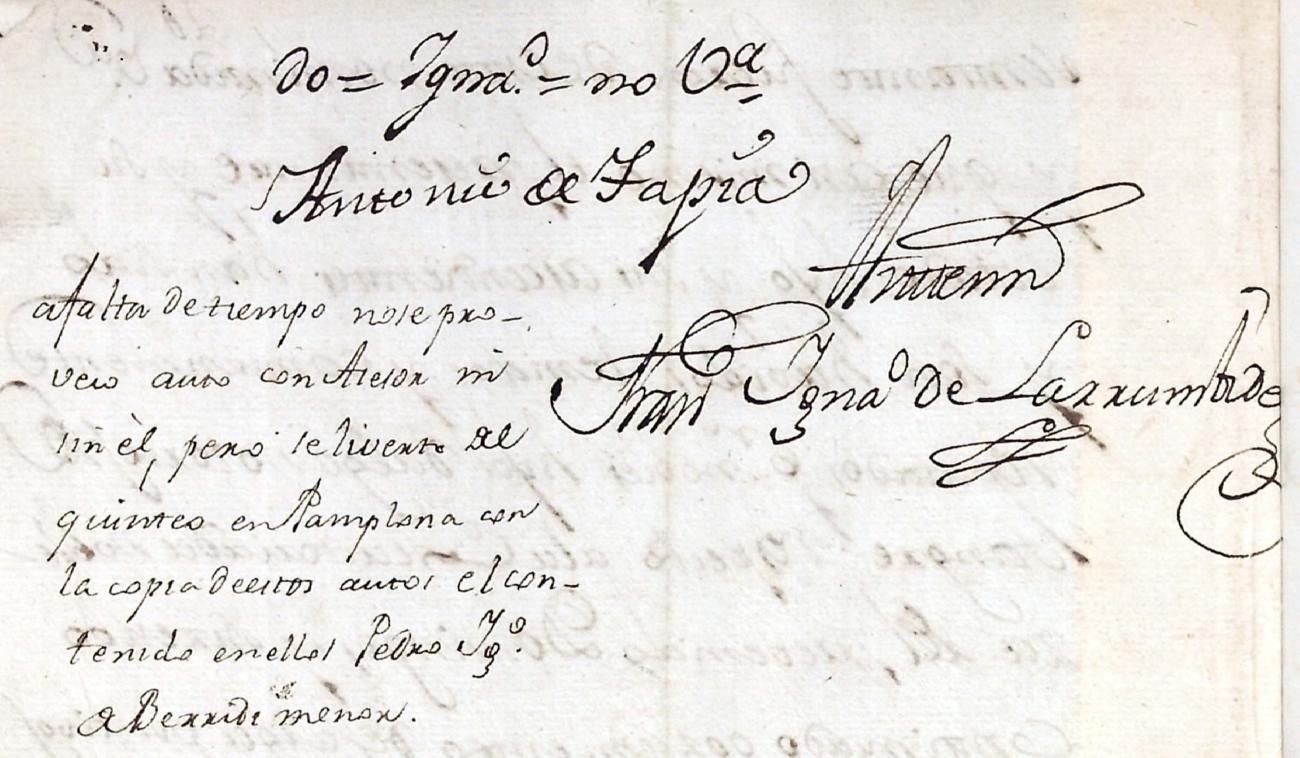 do = Igna.º = no Vª
Antonio de Tapia
Antemi
Franº Ignaº de Larrumbide
a falta de tiempo nose pro-
veio auto con Asesor ni
sin èl, pero se liverto del
quinteo en Pamplona con
la copia deestos autos el con-
tenido enellos Pedro Igº.
de Berridi menor.